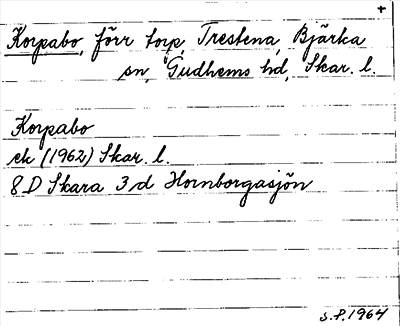 +
Korpabo, förr torp, Trestena, Bjärka
sn, Gudhems hd, Skar. l.
Korpabo
ek (1962) Skar. l.
8 D Skara 3 d Hornborgasjön
S.P. 1964